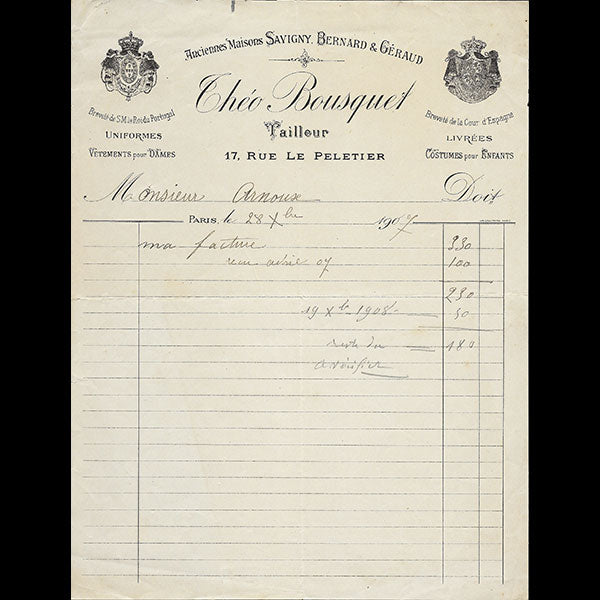 Anciennes Maisons SAVIGNY, BERNARD & GÉRAUD
Théo Bousquet
Tailleur
17, RUE LE PELETIER
Breveté de S.M. le Roi du Portugal
UNIFORMES
VÊTEMENTS pour DAMES
Breveté de la Cour d'Espagne
LIVRÉES
COSTUMES pour ENFANTS
Monsieur Arnoux Doit
PARIS, le 28 Xbre 1907
ma facture 330
reçu avril 07 100
230
19 Xb 1908 50
reste du 180
à vérifier